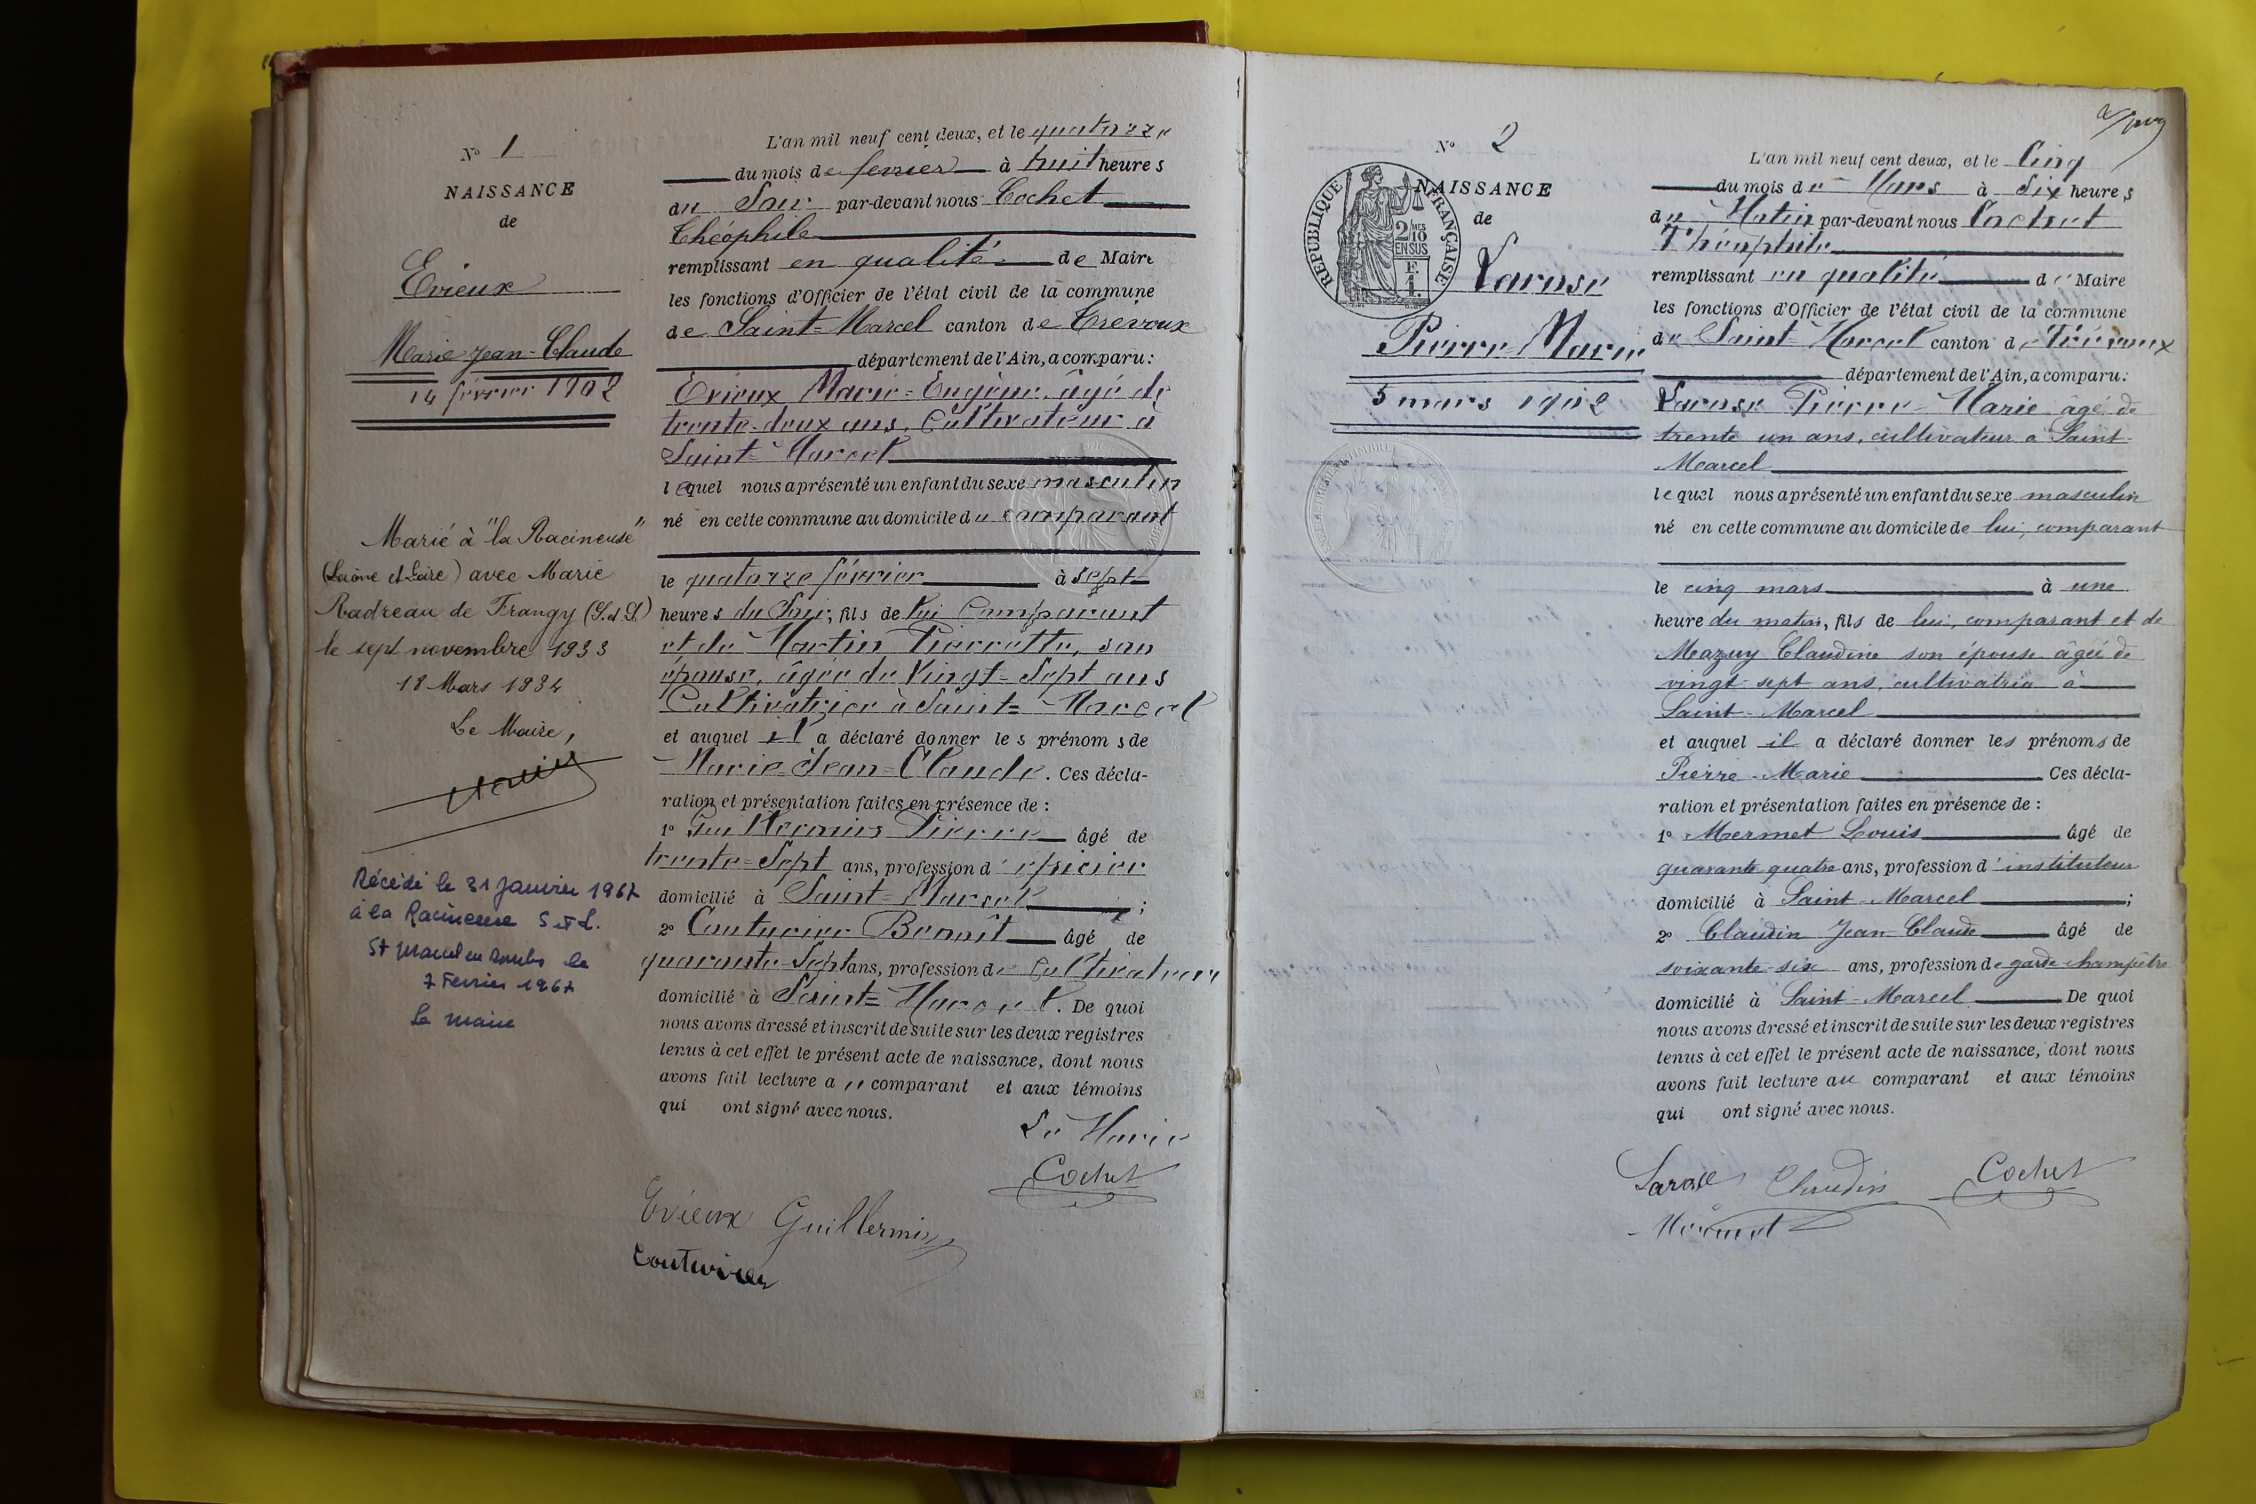 N° 1
NAISSANCE
de
Evieux
Marie Jean-Claude
14 février 1902
Marié à "la Racineuse"
(Saône et Loire) avec Marie
Radreau de Frangy (S. et L.)
le sept novembre 1933
18 Mars 1934
Le Maire,
Décédé le 31 Janvier 1967
à la Racineuse S et L.
St Marcel en Dombes le
7 Fevrier 1967
Le maire
L'an mil neuf cent deux, et le quatorze
du mois de fevrier à huit heures
du Soir par-devant nous Cochet
Théophile
remplissant en qualité de Maire
les fonctions d'Officier de l'état civil de la commune
de Saint-Marcel canton de Trévoux
département de l'Ain, a comparu:
Evieux Marie-Eugène, âgé de
trente-deux ans, Cultivateur à
Saint-Marcel
lequel nous a présenté un enfant du sexe masculin
né en cette commune au domicile du comparant
le quatorze février à sept
heures du Soir, fils de lui Comparant
et de Martin Pierrette, son
épouse, âgée de Vingt-Sept ans
Cultivatrice à Saint-Marcel
et auquel il a déclaré donner les prénoms de
Marie-Jean-Claude. Ces décla-
ration et présentation faites en présence de:
1° Guillermin Pierre âgé de
trente-Sept ans, profession d'épicier
domicilié à Saint-Marcel;
2° Couturier Benoît âgé de
quarante-Sept ans, profession de Cultivateur
domicilié à Saint-Marcel. De quoi
nous avons dressé et inscrit de suite sur les deux registres
tenus à cet effet le présent acte de naissance, dont nous
avons fait lecture au comparant et aux témoins
qui ont signé avec nous.
Le Maire
Cochet
Evieux Guillermin
Couturier
N° 2
NAISSANCE
de
RÉPUBLIQUE FRANÇAISE
2/10 MES
EN SUS
F.
1.
Larose
Pierre-Marie
5 mars 1902
L'an mil neuf cent deux, et le Cinq
du mois de Mars à Six heures
du Matin par-devant nous Cochet
Théophile
remplissant en qualité de Maire
les fonctions d'Officier de l'état civil de la commune
de Saint-Marcel canton de Trévoux
département de l'Ain, a comparu:
Larose Pierre-Marie âgé de
trente un ans, cultivateur à Saint-
Marcel
lequel nous a présenté un enfant du sexe masculin
né en cette commune au domicile de lui, comparant
le cinq mars à une
heure du matin, fils de lui, comparant et de
Mazuy Claudine son épouse âgée de
vingt-sept ans, cultivatrice à
Saint-Marcel
et auquel il a déclaré donner les prénoms de
Pierre-Marie Ces décla-
ration et présentation faites en présence de:
1° Mermet Louis âgé de
quarante quatre ans, profession d'instituteur
domicilié à Saint-Marcel;
2° Claudin Jean Claude âgé de
soixante-six ans, profession de garde-champêtre
domicilié à Saint-Marcel De quoi
nous avons dressé et inscrit de suite sur les deux registres
tenus à cet effet le présent acte de naissance, dont nous
avons fait lecture au comparant et aux témoins
qui ont signé avec nous.
Larose Claudin Cochet
Mermet